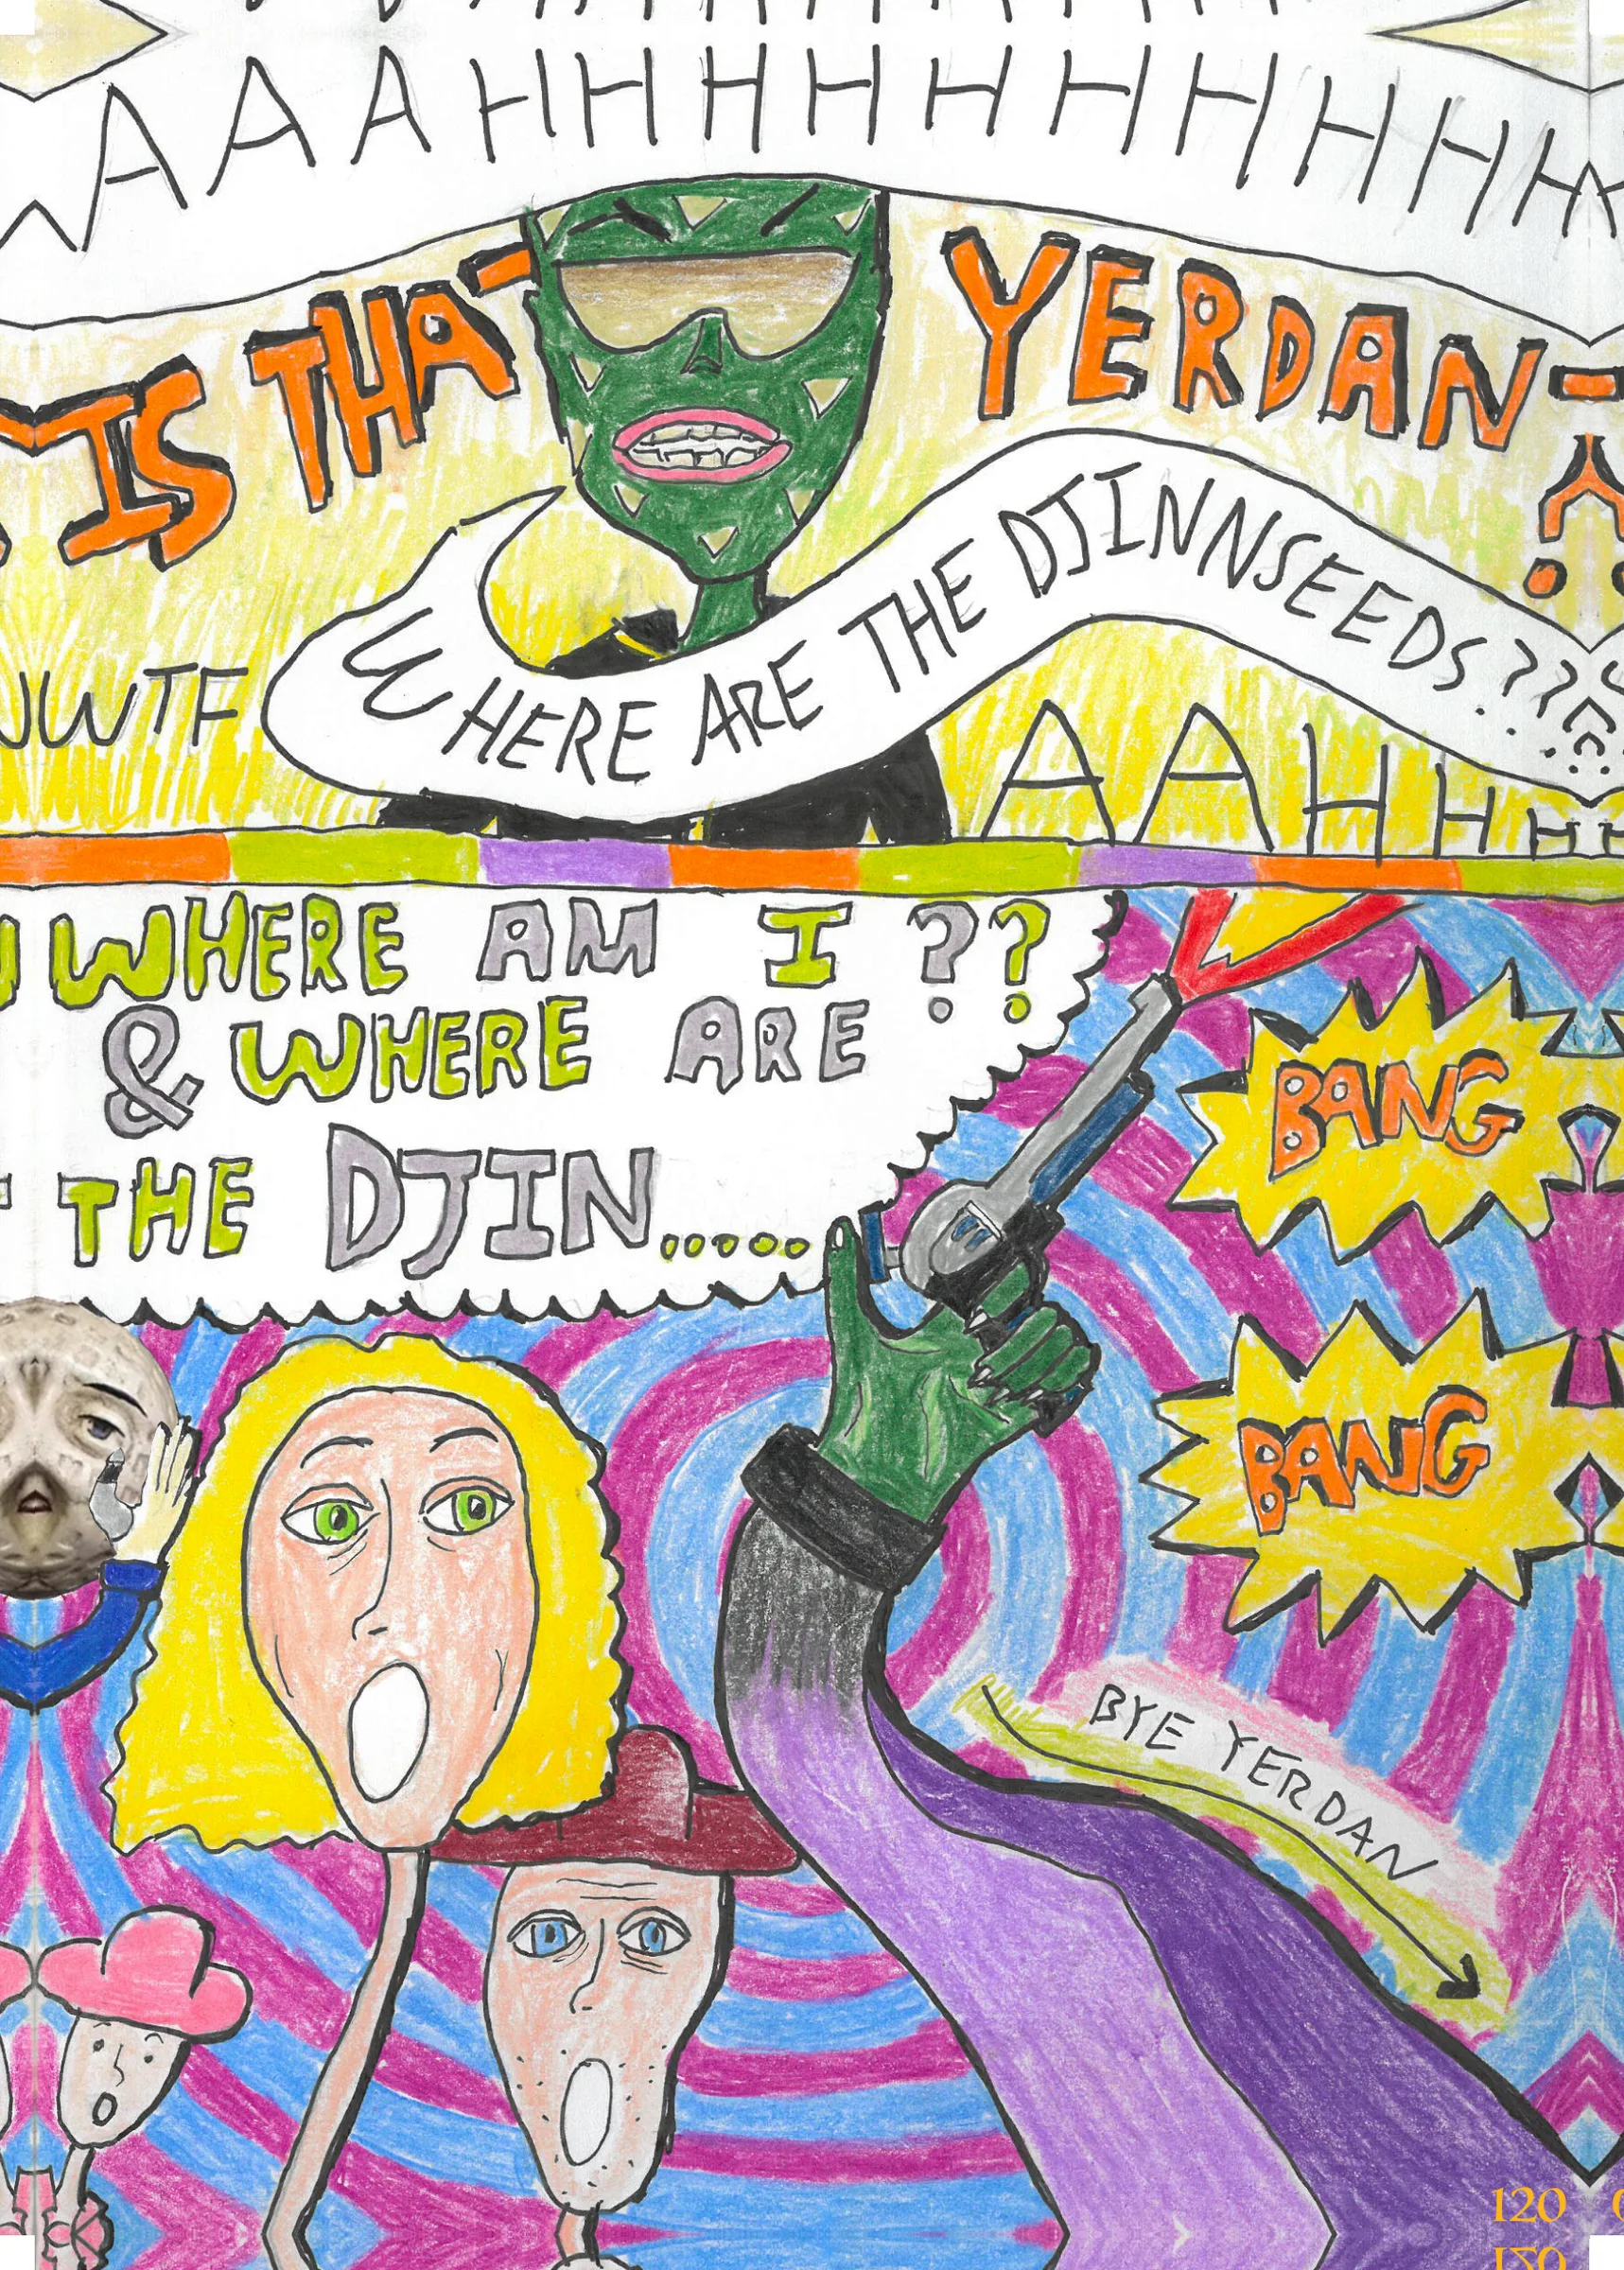 AAAHHHHHHHHHH
IS THAT YERDAN
WHERE ARE THE DJINNSEEDS??
WTF
AAHHHH
WHERE AM I ??
& WHERE ARE
THE DJIN.....
BANG
BANG
BYE YERDAN
120